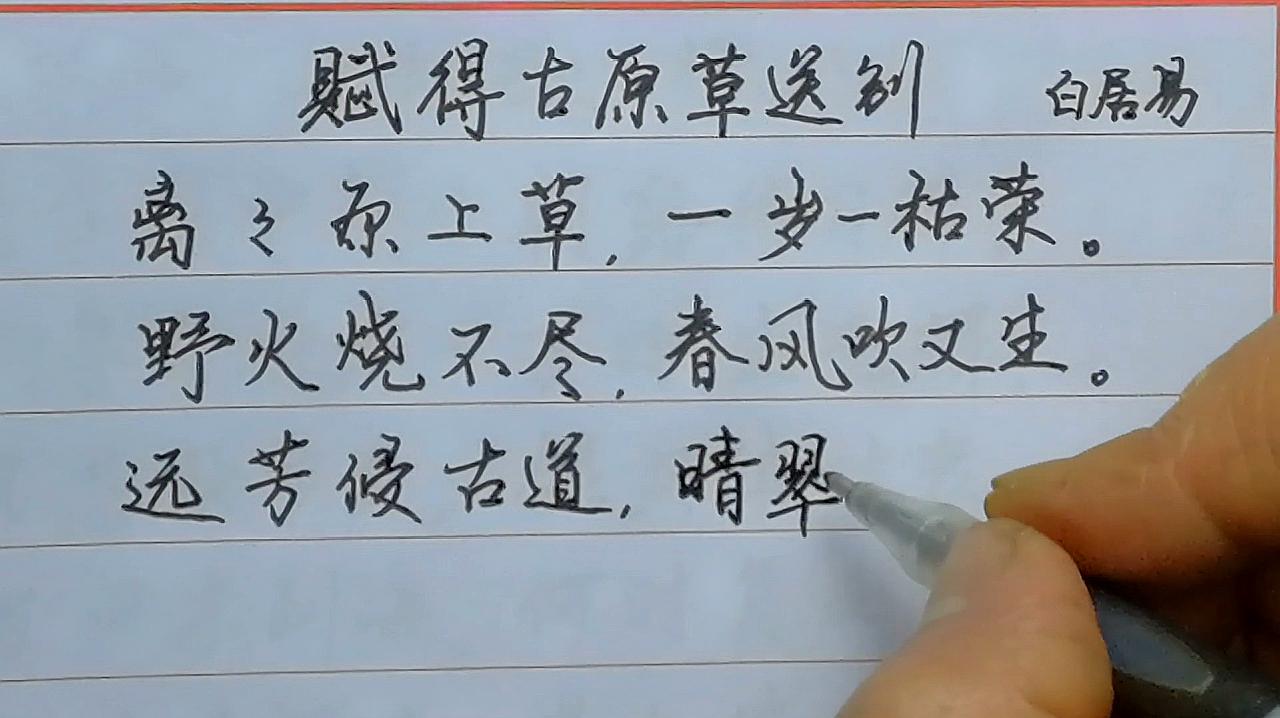 赋得古原草送别 白居易
离々原上草,一岁一枯荣。
野火烧不尽,春风吹又生。
远芳侵古道,晴翠